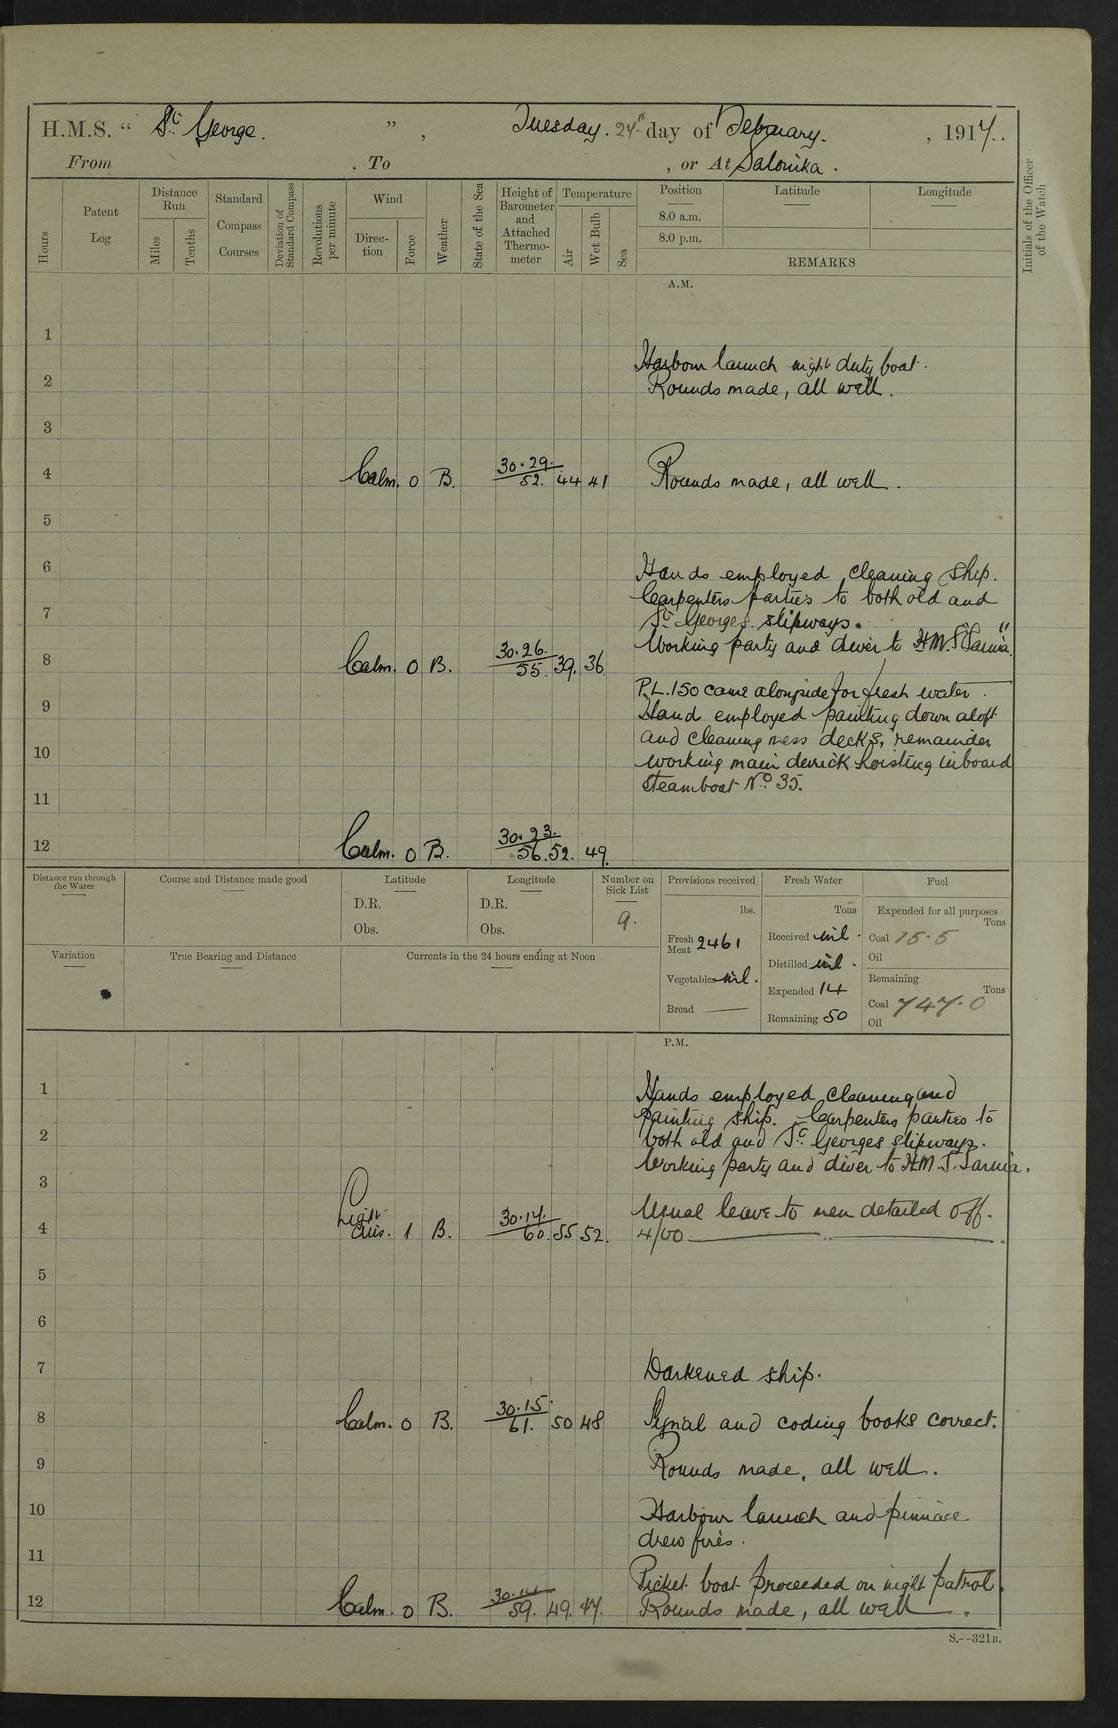 H.M.S. “ St George. ” , Tuesday. 24th day of February. , 1917.
From . To , or At Salonika.
Hours
Patent Log
Distance Run
Miles
Tenths
Standard Compass Courses
Deviation of Standard Compass
Revolutions per minute
Wind
Direction
Force
Weather
State of the Sea
Height of Barometer and Attached Thermometer
Temperature
Air
Wet Bulb
Sea
Position
8.0 a.m.
8.0 p.m.
Latitude
Longitude
REMARKS
Initials of the Officer of the Watch
A.M.
1
Harbour launch night duty boat.
2 Rounds made, all well.
3
4 Calm. 0 B. 30.29. 52. 44 41 Rounds made, all well.
5
6 Hands employed cleaning ship.
Carpenters parties to both old and
7 St Georges slipways.
Working party and diver to H.M.S "Sarnia"
8 Calm. 0 B. 30.26. 55. 39. 36
P.L.150 came alongside for fresh water.
9 Hand employed painting down aloft
and cleaning mess decks, remainder
10 working main derrick hoisting inboard
steamboat No. 35.
11
12 Calm. 0 B. 30.23. 56. 52. 49.
Distance run through the Water
Course and Distance made good
Latitude
D.R.
Obs.
Longitude
D.R.
Obs.
Number on Sick List
9.
Provisions received
lbs.
Fresh Meat 2461
Vegetables nil.
Bread —
Fresh Water
Tons
Received nil.
Distilled nil.
Expended 14
Remaining 50
Fuel
Expended for all purposes
Tons
Coal 15.5
Oil
Remaining
Tons
Coal 747.0
Oil
Variation
True Bearing and Distance
Currents in the 24 hours ending at Noon
P.M.
1 Hands employed cleaning and
painting ship. Carpenters parties to
2 both old and St Georges slipways.
Working party and diver to H.M.S. Sarnia.
3
Usual leave to men detailed off.
4 Light airs. 1 B. 30.17. 60. 55 52. 4/00
5
6
7 Darkened ship.
8 Calm. 0 B. 30.15. 61. 50 48 Signal and coding books correct.
9 Rounds made, all well.
10 Harbour launch and pinnace
drew fires.
11
Picket boat proceeded on night patrol.
12 Calm. 0 B. 59. 49. 47. Rounds made, all well.
S.--321B.